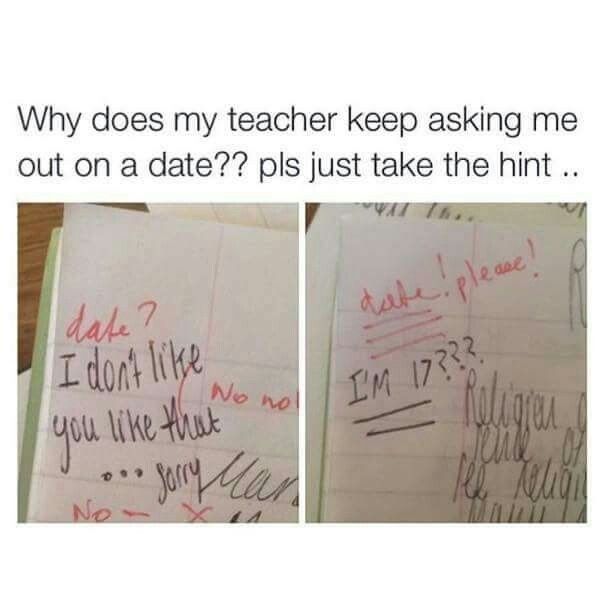 Why does my teacher keep asking me
out on a date?? pls just take the hint ..
date?
I don't like
No no!
you like that
... sorry
No -
date! please!
I'M 17???
Religion